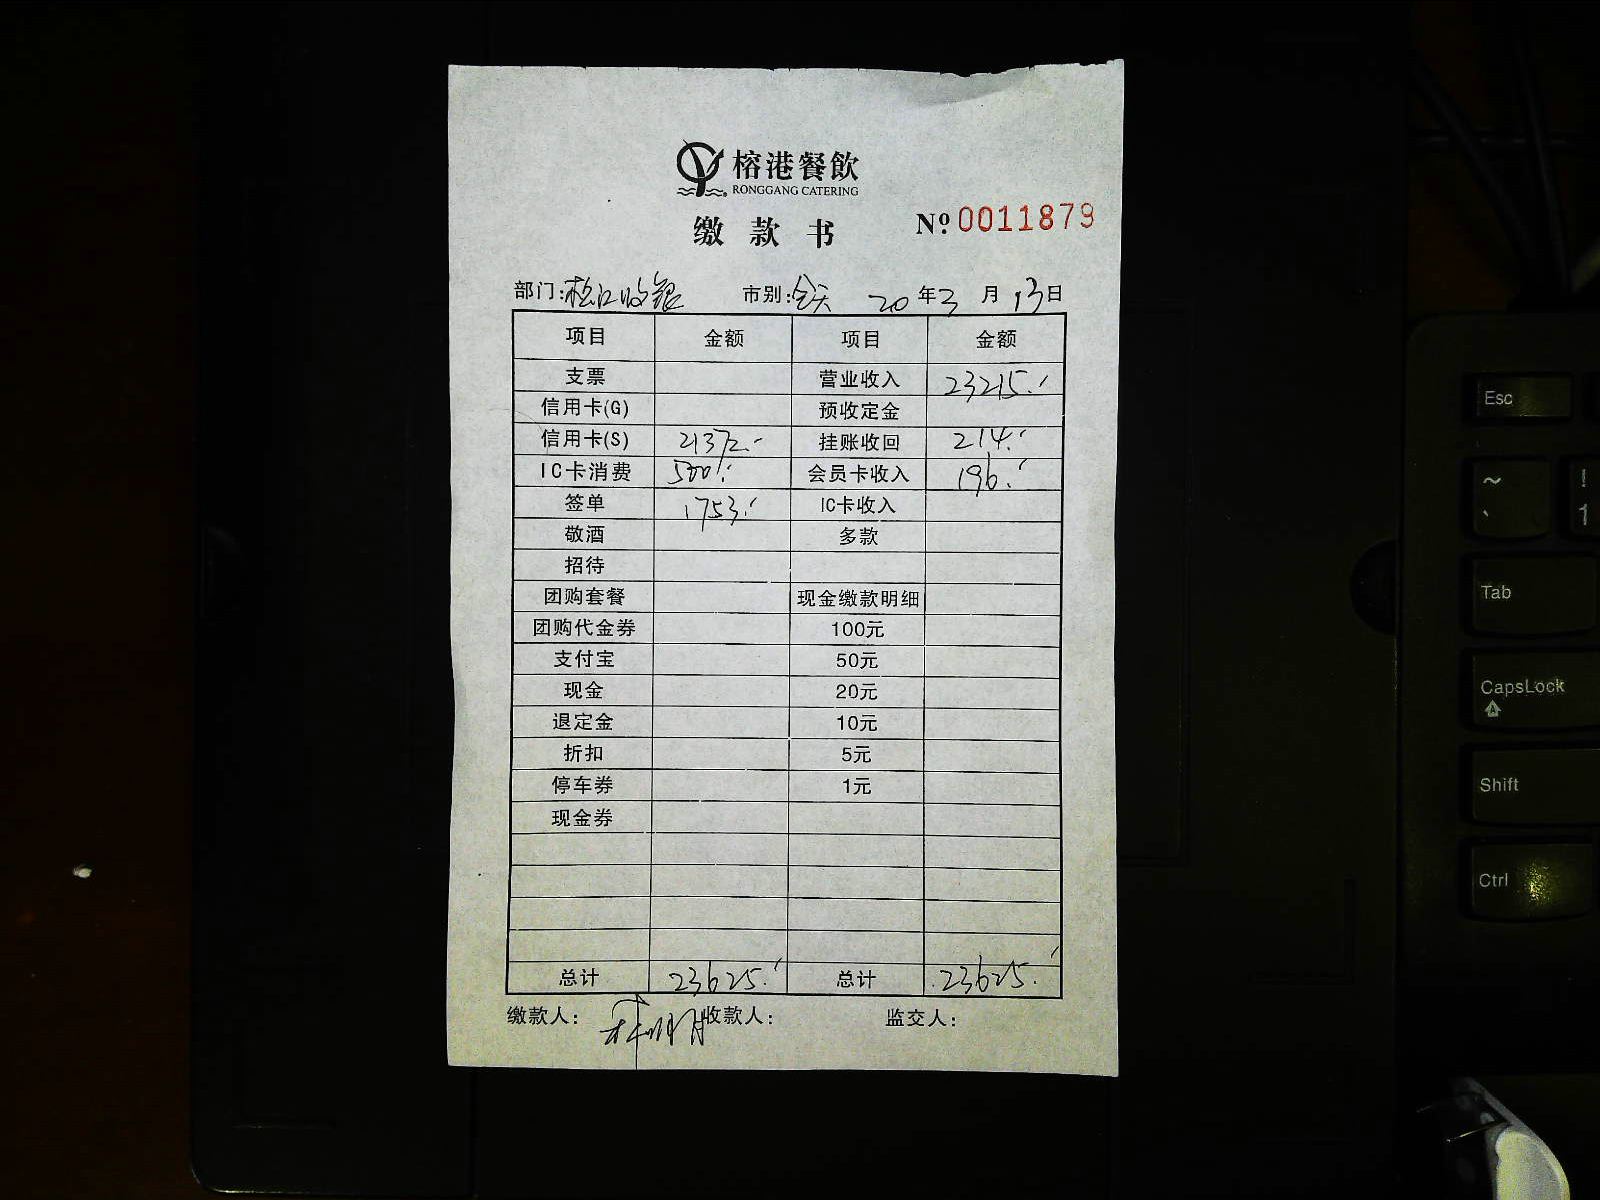 榕港餐飲
RONGGANG CATERING
缴款书 Nº 0011879
部门: 收银 市别: 全天 20年3月13日
项目 金额 项目 金额
支票 营业收入 23215.
信用卡(G) 预收定金
信用卡(S) 21372.- 挂账收回 214.
IC卡消费 500. 会员卡收入 196.
签单 1753. IC卡收入
敬酒 多款
招待
团购套餐 现金缴款明细
团购代金券 100元
支付宝 50元
现金 20元
退定金 10元
折扣 5元
停车券 1元
现金券
总计 23625. 总计 23625.
缴款人: 收款人: 监交人:
Esc
~ !
` 1
Tab
CapsLock
Shift
Ctrl